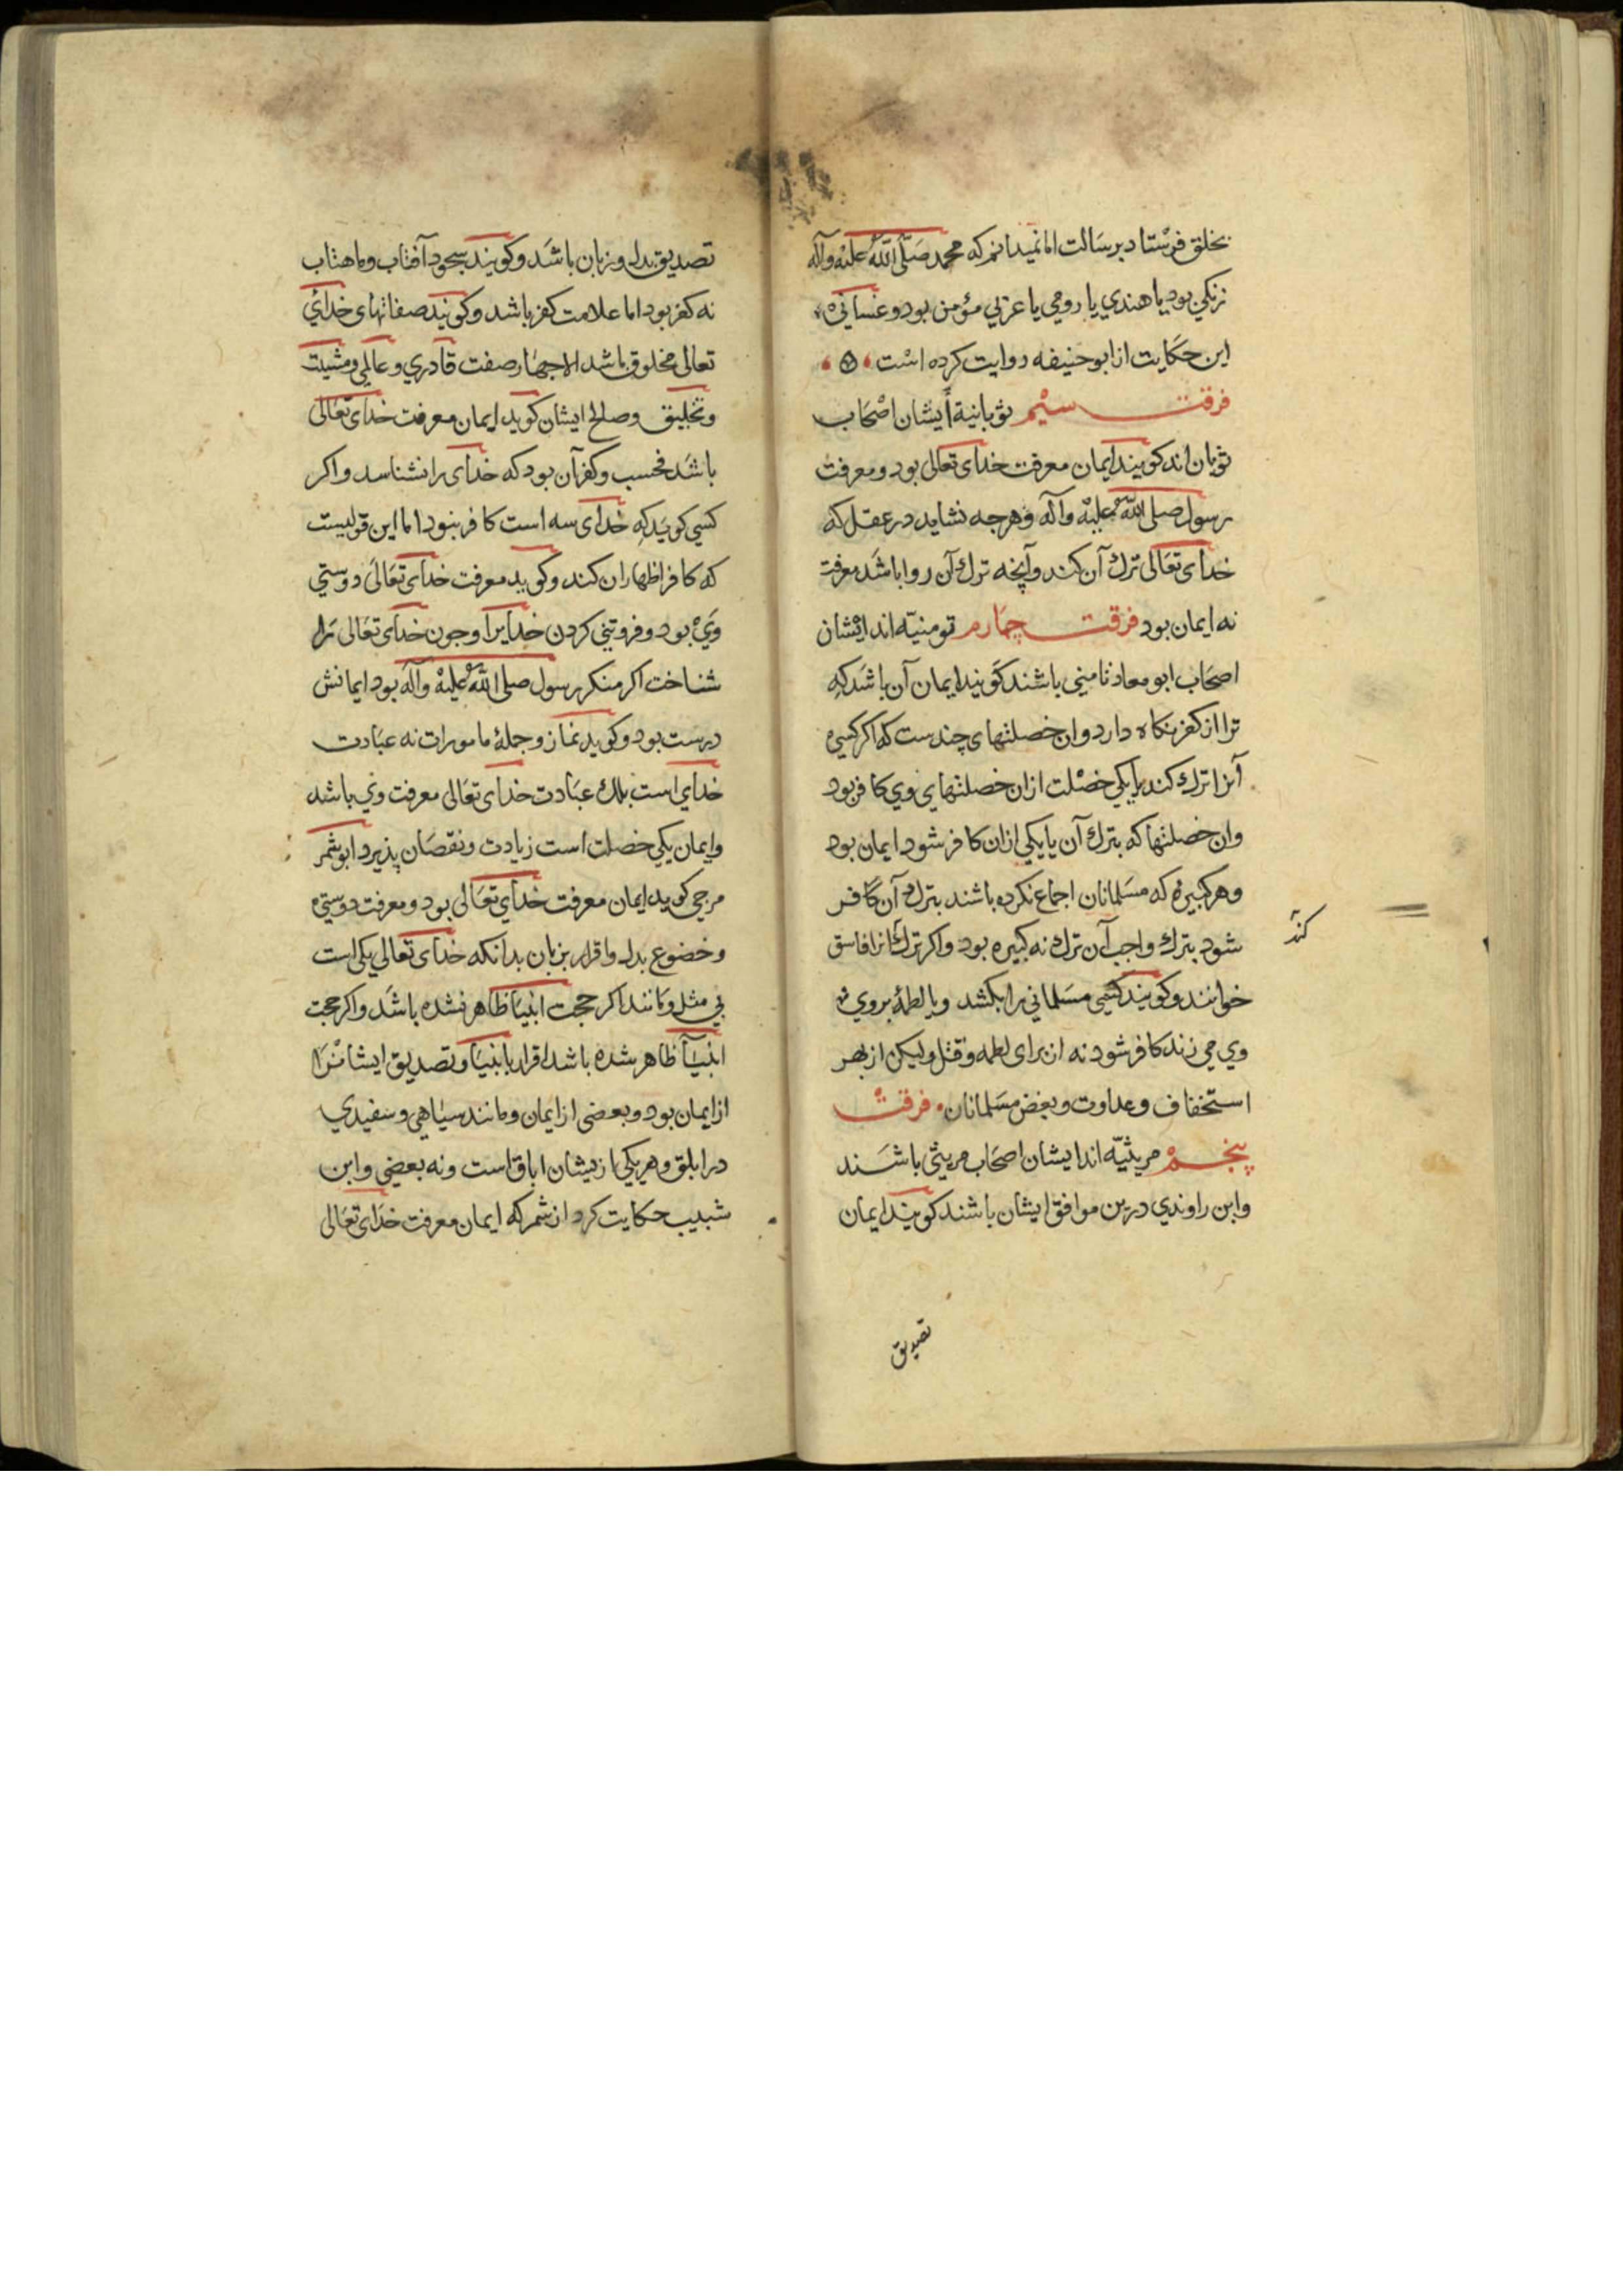 بخلق فرستاد برسالت اما نمیدانم که محمد صلی الله علیه وآله
زنکی بود یا هندی یا رومی یا عربی مؤمن بود و غسانی
این حکایت از ابو حنیفه روایت کرده است
فرقت سیم ثوبانیة ایشان اصحاب
ثوبان اند کویند ایمان معرفت خدای تعالی بود و معرفت
رسول صلی الله علیه وآله وهرجه نشاید در عقل که
خدای تعالی ترك آن کند وآنچه ترك آن روا باشد معرفت
نه ایمان بود فرقت چهارم تومنیّه اند ایشان
اصحاب ابو معاد تامنی باشند کویند ایمان آن باشد که
ترا از کفر نکاه دارد وان خصلتهای چندست که اکر کسی
آنرا ترك کند یا یکی خصلت ازان خصلتهای وی کافر بود
وان خصلتها که بترك آن یا یکی ازان کافر شود ایمان بود
وهر کبیرۀ که مسلمانان اجماع نکرده باشند بترك آن کافر
شود بترك واجب آن ترك نه کبیره بود واکر ترك انرا فاسق
کند
خوانند وکویند کسی مسلمانی را بکشد ویا لطمۀ بر روی
وی می زند کافر شود نه از برای لطمه وقتل ولیکن از بهر
استخفاف وعداوت وبغض مسلمانان فرقت
پنجم مریثیّه اند ایشان اصحاب مریثی باشند
وابن راوندی درین موافق ایشان باشند کویند ایمان
تصدیق
تصدیق بدل وزبان باشد وکویند سجود آفتاب وماهتاب
نه کفر بود اما علامت کفر باشد وکویند صفاتهای خدای
تعالی مخلوق باشد الا چهار صفت قادری و عالمی ومشیت
وتخلیق وصالح ایشان کوید ایمان معرفت خدای تعالی
باشد فحسب وکفر آن بود که خدای را نشناسد واکر
کسی کوید که خدای سه است کافر نبود اما این قولیست
که کافر اظهار ان کند وکوید معرفت خدای تعالی دوستی
وی بود وفروتنی کردن خدایرا وچون خدای تعالی را
شناخت اکر منکر رسول صلی الله علیه وآله بود ایمانش
درست بود وکوید نماز وجملۀ مامورات نه عبادت
خدای است بلك عبادت خدای تعالی معرفت وی باشد
وایمان یکی خصلت است زیادت ونقصان پذیرد ابو شمر
مرجی کوید ایمان معرفت خدای تعالی بود ومعرفت دوستی
وخضوع بدل واقرار بزبان بدانکه خدای تعالی یکی است
بی مثل ومانند اکر حجت انبیا ظاهر نشده باشد واکر حجت
انبیا ظاهر شده باشد اقرار بانبیا وتصدیق ایشان
از ایمان بود وبعضی از ایمان ومانند سیاهی وسفیدی
در ابلق وهریکی ازیشان اباق است ونه بعضی وابن
شبیب حکایت کرد از شمر که ایمان معرفت خدای تعالی